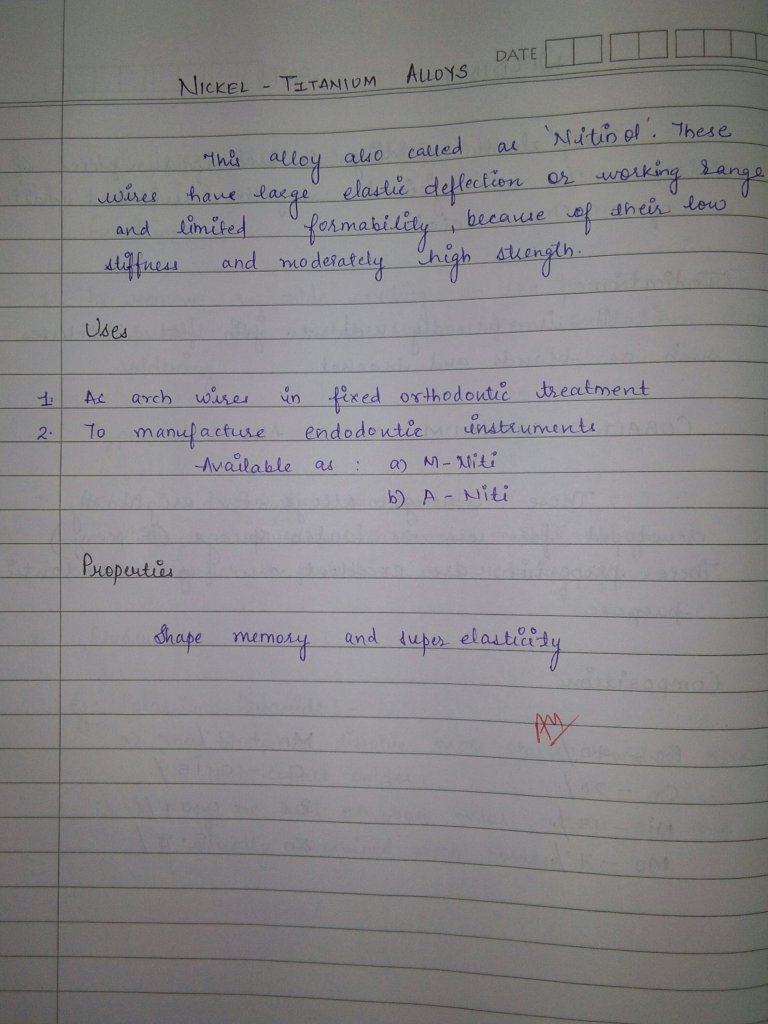 DATE
NICKEL - TITANIUM ALLOYS
This alloy also called as 'Nitinol'. These
wires have large elastic deflection or working range
and limited formability, because of their low
stiffness and moderately high strength.
Uses
1. As arch wires in fixed orthodontic treatment
2. To manufacture endodontic instruments
Available as : a) M-Niti
b) A - Niti
Properties
Shape memory and super elasticity